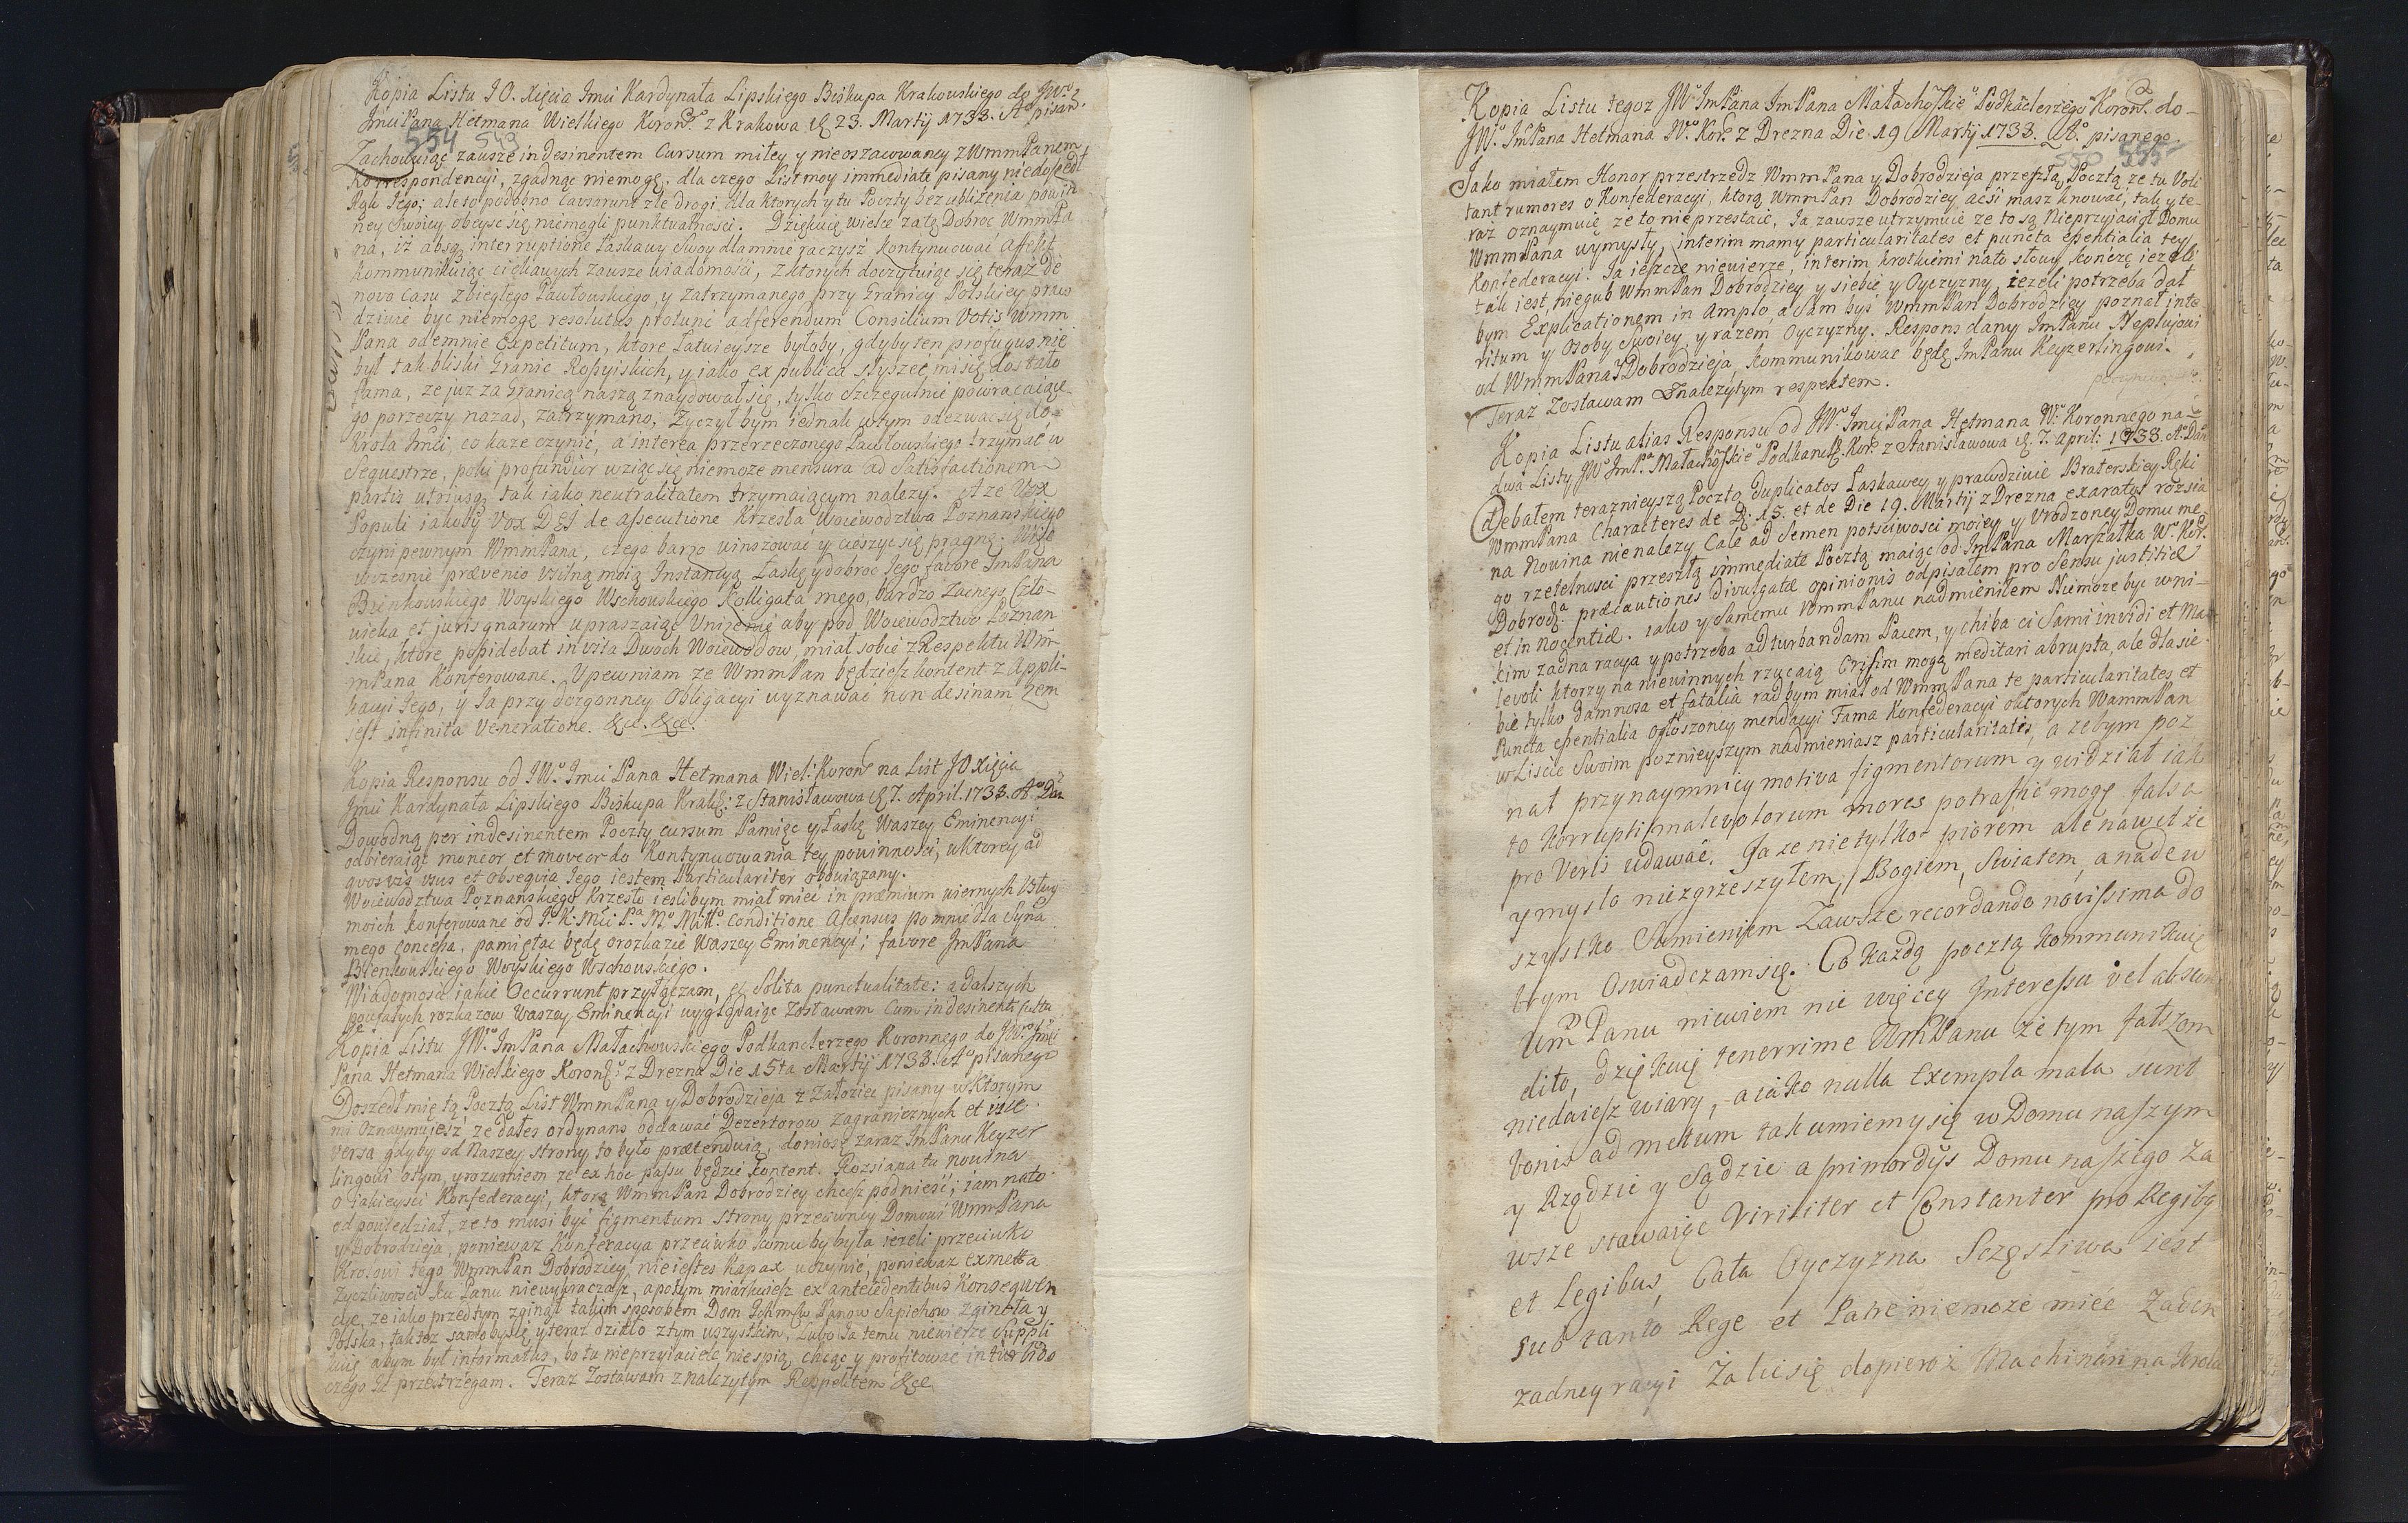 Kopia Listu J O. Xięcia Imci Kardynała Lipskiego Biskupa Krakowskiego do JWo
Imci Pana Hetmana Wielkiego Koron. z Krakowa 23. Martij 1738. Ao pisan
554 549
Zachowuiąc zausze indesinentem Cursum miłey y nieoszacowaney z WmmPanem
Korrespondencyi, zgadnąc niemogę. dla czego List moy immediate pisany niedoszedł
Rąk Jego; ale to podobno Causarunt złe drogi, dla ktorych y tu Poczty bez ubliżenia powin
ney Swoiey obeysc się niemogli punktualnosci. Dziękuię wielce za tę Dobroc WmmPa
na, iż absq interruptione łaskawy swoy dla mnie raczysz kontynuowac affekt
kommunikuiąc ciekawych zausze wiadomosci, z ktorych doczytuiąc się teraz de
novo Casu zbiegłego Pawłowskiego, y zatrzymanego przy Granicy Polskiey, praw
dziwie byc niemogę resolutus protunc ad ferendum Consilium Votis Wmm
Pana odemnie Expetitum, ktore łatwieysze byłoby, gdyby ten profugus nie
był tak bliski Granic Rossyiskich, y iako ex publica słyszeć mi się dostało
fama, ze juz za Granicą naszą znaydował się, tylko szczegulnie powracaiące
go porzeczy nazad, zatrzymano; Zyczył bym iednak w tym odezwac się do
Krola Imci, co kaze czynić, a interea przerzeczonego Pawłowskiego trzymać w
Sequestrze, poki profundior wziąc się niemoze mensura ad Satisfactionem
partis utriusq tak iako neutralitatem trzymaiącym nalezy. A ze Vox
Populi iakoby Vox DEI de assecutione Krzesła Woiewodztwa Poznanskiego
czyni pewnym WmmPana, czego barzo winszować y cieszyc się pragnę. Więc
wczesnie prævenio usilną moią Instancyą Łaskę y dobroc Jego favore ImPana
Bienkowskiego Woyskiego Wschowskiego Kolligata mego, bardzo zacnego Czło-
wieka et jurisgnarum upraszaiąc Unizenie aby pod Woiewodztwo Poznan
skie, ktore possidebat in vita Dwoch Woiewodow, miał sobie z Respektu Wm-
mPana Konferowane. Upewniam ze WmmPan będziesz kontent z Appli-
kacyi Jego, y Ja przy dozgonney Obligacyi wyznawać non desinam, zem
iest infinita Veneratione. &ce. &ce.
Kopia Responsu od JWo Imci Pana Hetmana Wiel: Koron na List JO Xięcia
Imci Kardynała Lipskiego Biskupa Krak: z Stanisławowa 7. April. 1738. Ao Dan
Dowodną per indesinentem Poczty cursum Pamięc y Łaskę Waszey Eminencyi
odbieraiąc moneor et moveor do Kontynuowania tey powinnosci, w ktorey ad
quosvis usus et obsequia Jego iestem Particulariter obowiązany.
Woiewodztwa Poznanskiego Krzesło ieslibym miał mieć in præmium wiernych Usług
moich konferowane od J. K. Mci Pa Mo Miło Conditione Ascensus po mnie dla Syna
mego concessa, pamiętac będę o rozkazie Waszey Eminencyi; favore ImPana
Bienkowskiego Woyskiego Wschowskiego.
Wiadomosci iakie Occurrunt przyłączam, ex Solita punctualitate; a dalszych
poufałych rozkazow Waszey Eminencyi wyglądaiąc Zostawam Cum indesinenti cultu
Kopia Listu JWo ImPana Małachowskiego Podkanclerzego Koronnego do JWo Imci
Pana Hetmana Wielkiego Koron: z Drezna Die 15ta Martij 1738. Ao pisanego
Doszedł mię tą Pocztą List WmmPana y Dobrodzieja z Załoziec pisany w ktorym
mi Oznaymujesz ze dałes ordynans oddawać Dezerterow zagranicznych et vice
versa gdyby od Naszey strony to było prætenduią, doniosł zaraz ImPanu Keyzer
lingowi o tym, y rozumiem ze ex hoc passu będzie kontent. Rozsiana tu nowina
o iakieysci Konfederacyi, ktorą WmmPan Dobrodziey chcesz podniesć; iam na to
odpowiedział, ze to musi byc figmentum strony przeciwney Domowi WmmPana
y Dobrodzieja, poniewaz Konfederacya przeciwko komu by była iezeli przeciwko
Krolowi tego WmmPan Dobrodziey nie iestes kapax uczynić, poniewaz ex meta
zyczliwosci ku Panu niewykraczasz, a potym miarkuiesz ex antecedentibus konsequen
cye, ze iako przedtym zginął takim sposobem Dom Ichmsw Panow Sapiehow zginęła y
Polska, tak toz samo by się y teraz działo z tym wszystkim, lubo Ja temu niewierze Suppli
kuię abym był informatus, bo tu nieprzyiaciele niespią, chcąc y profitować in turbido
czego Ja przestrzegam. Teraz Zostawam z należytym Respektem &ce
Kopia Listu tegoz JWo ImPana ImPana Małachowskiego Podkanclerzego Koron. do
JWo ImPana Hetmana Wo Kor. z Drezna Die 19 Martij 1738. Ao pisanego
550 555
Jako miałem Honor przestrzedz WmmPana y Dobrodzieja przeszłą Pocztą, ze tu Voli
tant rumores o Konfederacyi, ktorą WmmPan Dobrodziey acsi masz knować, tak y te-
raz oznaymuię ze to nie przestaie, Ja zausze utrzymuię ze to są Nieprzyjacioł Domu
WmmPana wymysły, interim mamy particularitates et puncta essentialia tey
Konfederacyi. Ja ieszcze niewierze, interim krotkiemi na to słowy kończę iezeli
tak iest, niegub WmmPan Dobrodziey y siebie y Oyczyzny, iezeli potrzeba dał
bym Explicationem in Amplo, a Sam bys WmmPan Dobrodziey poznał inte
ritum y Osoby Swoiey, y razem Oyczyzny. Respons dany ImPanu Neplujowi
od WmmPana y Dobrodzieja, kommunikowac będę ImPanu Keyzerlingowi.
Teraz Zostawam z należytym respektem.
Kopia Listu alias Responsu od JWo Imci Pana Hetmana Wo Koronnego na
dwa Listy JWo ImPa Małachowskie Podkancl. Kor. z Stanisławowa 7. April: 1738. Ao Dan
Odebałem teraznieyszą Pocztą duplicatos Łaskawey, y prawdziwie Braterskiey Ręki
WmmPana Characteres de D. 15. et de Die 19. Martij z Drezna exaratos rozsia
na Nowina nie nalezy Cale ad Semen potsciwosci moiey y Urodzoney Domu me
go rzetelnosci przeszłą immediate Pocztą maiąc od ImPana Marszałka Wo Kor.
Dobrod. præcautionis divulgatæ opinionis odpisałem pro Sensu justitiæ
et in Nocentiæ. iako y Samemu WmmPanu nadmieniłem Niemoze byc w ni-
kim zadna racya y potrzeba ad turbandam Pacem, y chiba ci Sami invidi et Ma
levoli ktorzy na niewinnych rzycaią Crisim mogą meditari abrupta, ale dla sie
bie tylko damnosa et fatalia rad bym miał od WmmPana te particularitates et
Puncta essentialia ogłoszoney mendacyi Fama Konfederacyi o ktorych WammPan
w Liscie Swoim poznieyszym nadmieniasz particularitatis, a zebym poz
nał przynaymniey motiva figmentorum y widział iak
to Korrupti malevolorum mores potrafić mogę falsa
pro Veris udawać. Ja ze nie tylko piorem ale nawet że
y mysło niezgrzeszyłem, Bogiem, Swiatem, a nade w
szystko Sumieniem Zawsze recordando novissima do
brym Oswiadczam się. Co każdą pocztą Kommunikuię
UmPanu niewiem nic więcey Interessu vel abscon
dito, dziękuię tenerrime UmPanu że tym fałszom
niedaiesz wiary, a iako nulla Exempla mala sunt
bonis ad metum tak umiemy się w Domu naszym
y Rządzie y Sądzie a primordijs Domu naszego za
wsze stawaiąc Viriliter et Constanter pro Regibq
et legibus, Cała Oyczyzna Sczęsliwa iest
sub tanto Rege et Patre niemoże mieć Zaden
zadney racyi Zalić się dopieroż Machinari na